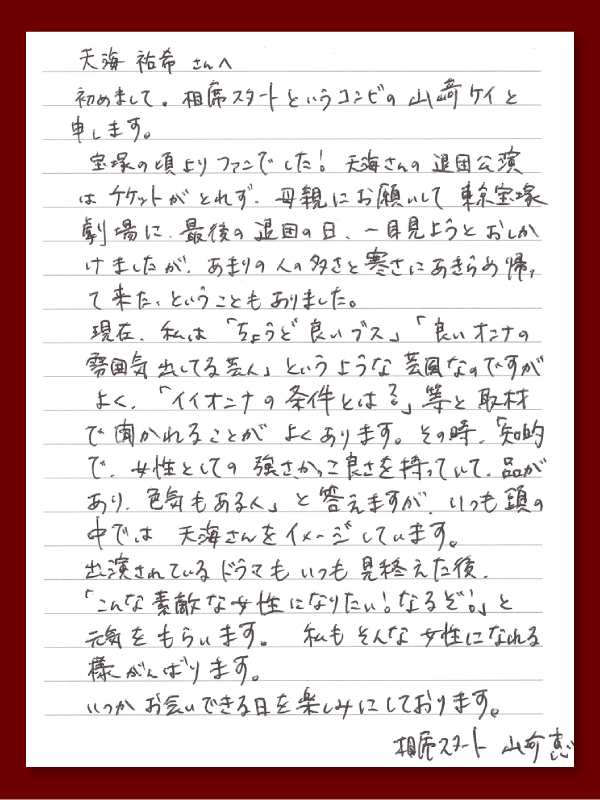 天海 祐希 さんへ
初めまして。相席スタートというコンビの 山﨑ケイと
申します。
宝塚の頃よりファンでした! 天海さんの 退団公演
は チケットがとれず、母親にお願いして 東京宝塚
劇場に、最後の退団の日、一目見ようと おしか
けましたが、あまりの人の多さと寒さにあきらめ 帰っ
て来た、ということもありました。
現在、私は「ちょうど良いブス」「良いオンナの
雰囲気出してる芸人」というような芸風なのですが
よく、「イイオンナの条件とは?」等と取材
で聞かれることが よくあります。その時、「知的
で、女性としての 強さかっこ良さを持っていて、品が
あり、色気もある人」と答えますが、いつも頭の
中では 天海さんをイメージしています。
出演されているドラマもいつも見終えた後、
「こんな素敵な女性になりたい!なるぞ!」と
元気をもらいます。 私もそんな女性になれる
様がんばります。
いつか お会いできる日を楽しみにしております。
相席スタート 山﨑 恵